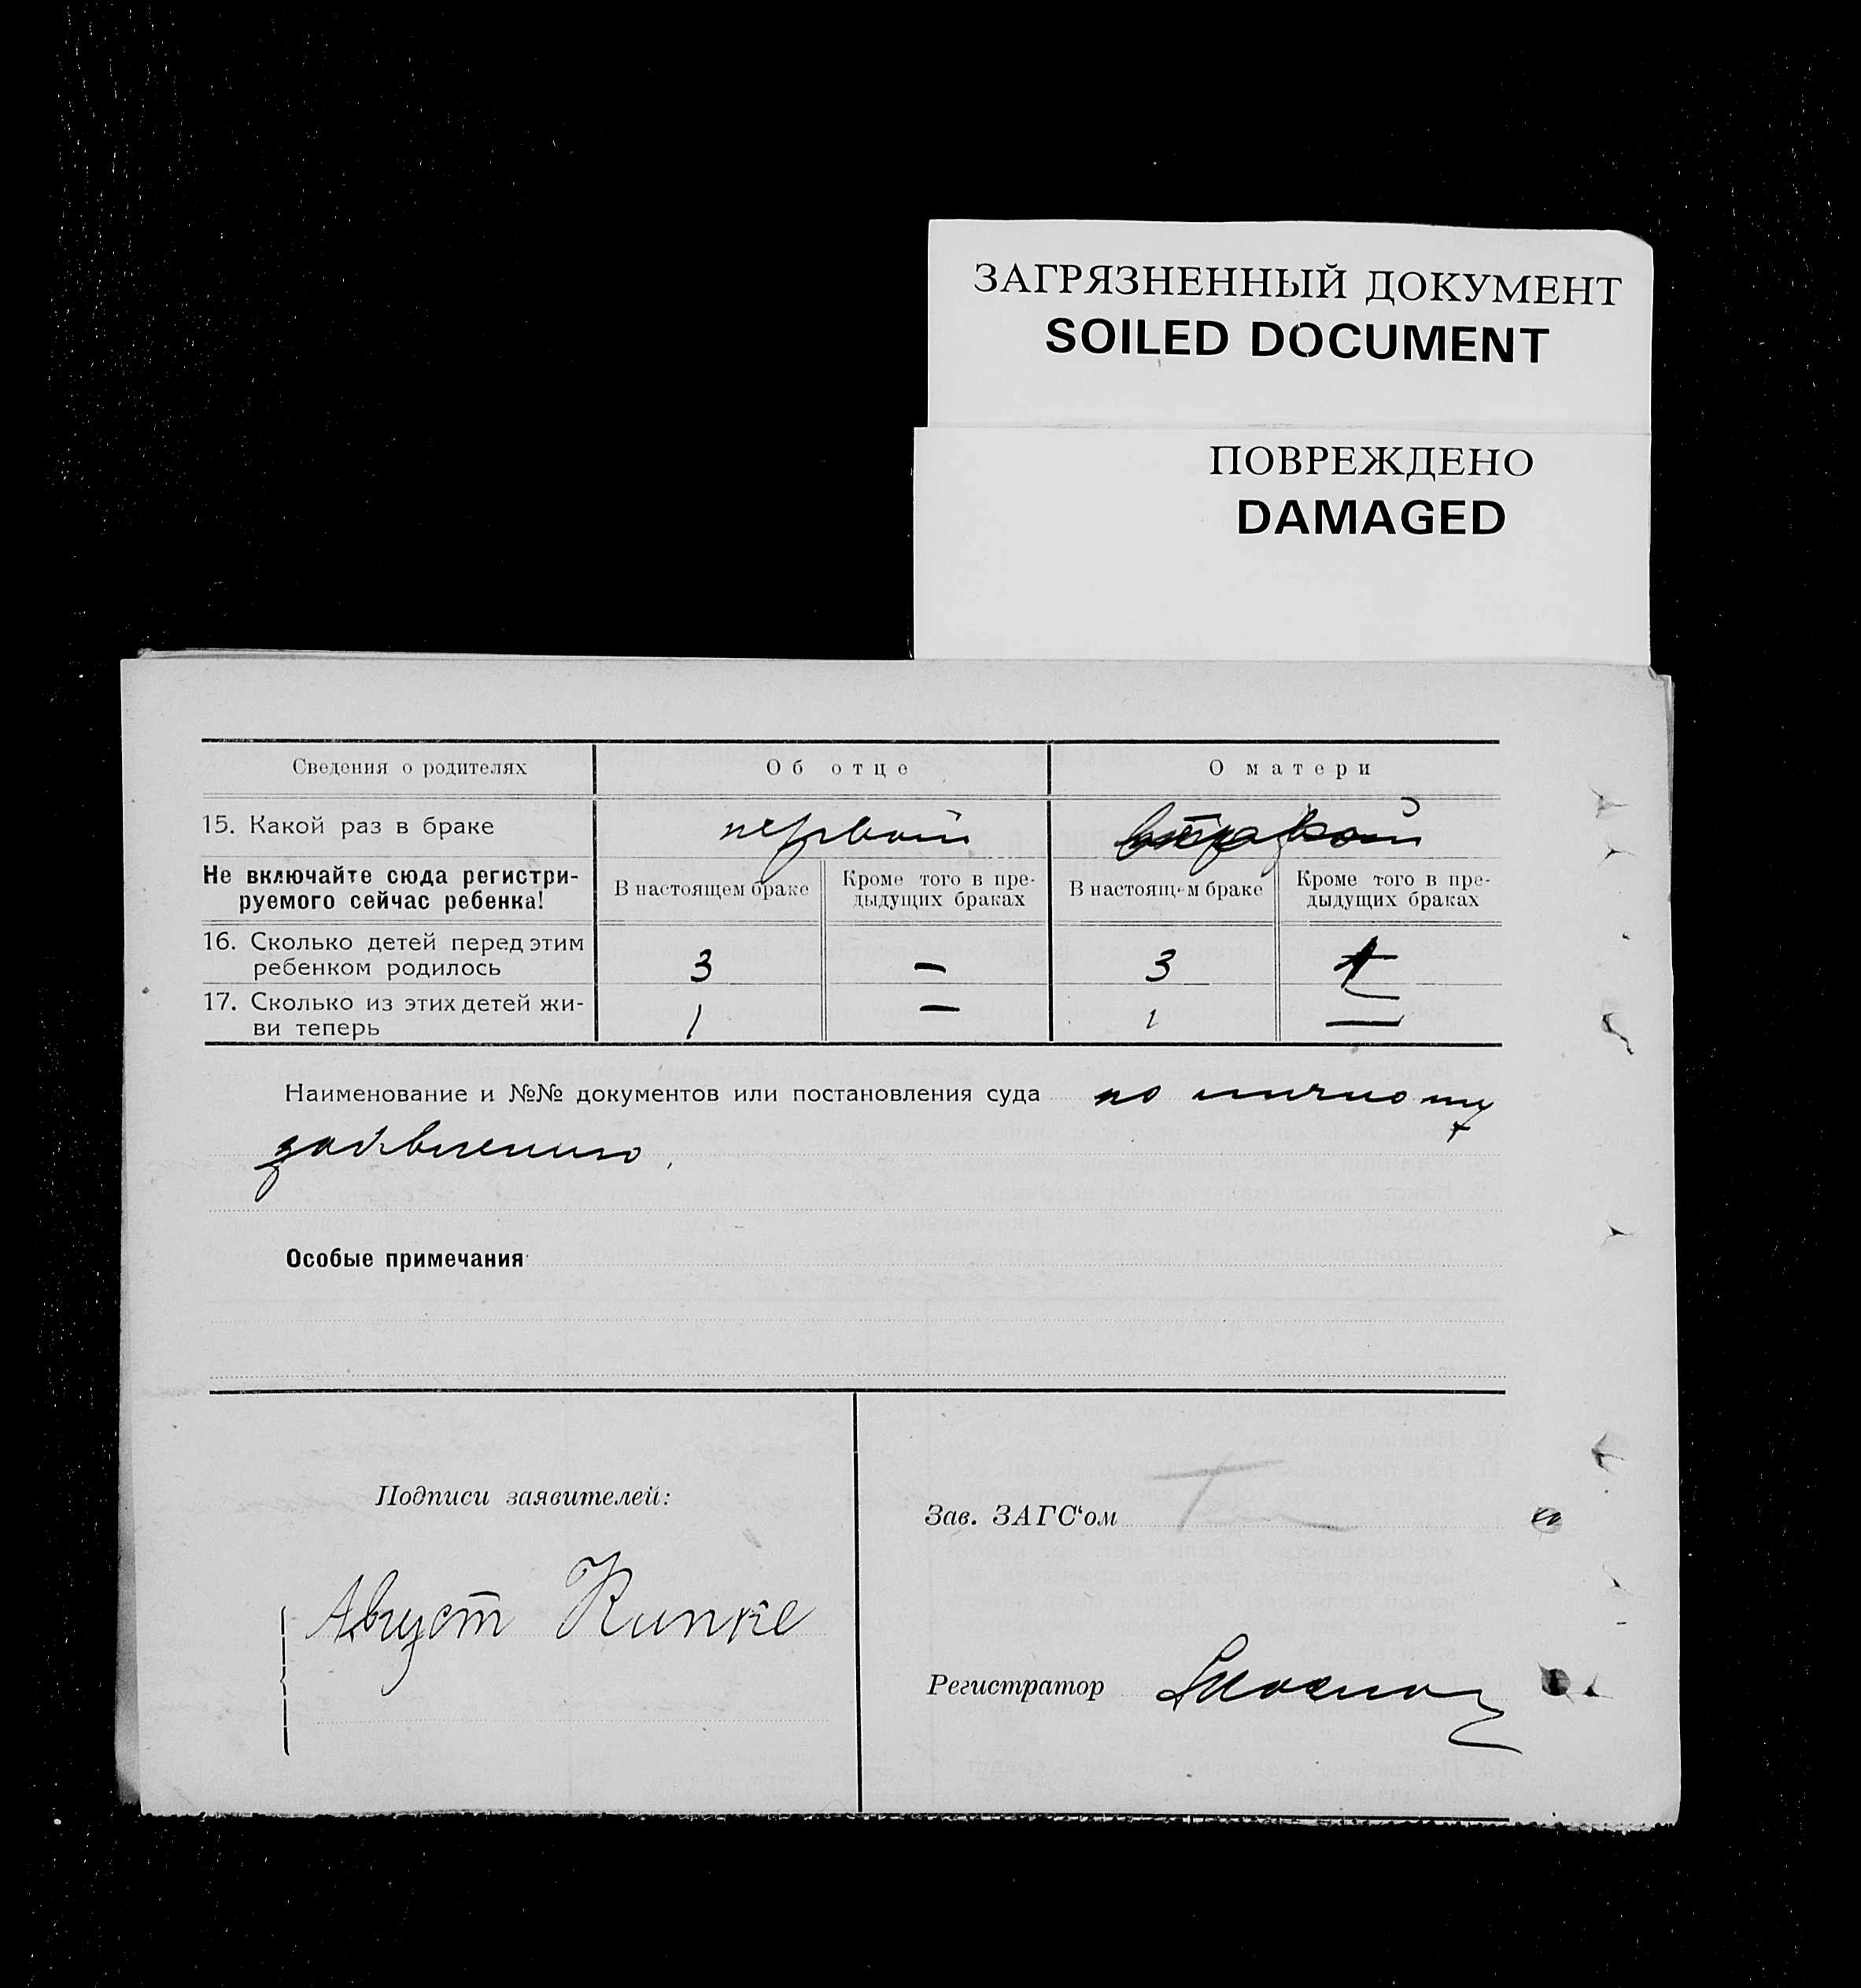 ЗАГРЯЗНЕННЫЙ ДОКУМЕНТ
SOILED DOCUMENT
ПОВРЕЖДЕНО
DAMAGED
Сведения о родителях Об отце О матери
15. Какой раз в браке первый
Не включайте сюда регистри-
руемого сейчас ребенка!
В настоящем браке
Кроме того в пре-
дыдущих браках
В настоящем браке
Кроме того в пре-
дыдущих браках
16. Сколько детей перед этим
ребенком родилось 3 — 3
17. Сколько из этих детей жи-
ви теперь 1 — 1 —
Наименование и №№ документов или постановления суда по личному
заявлению.
Особые примечания
Подписи заявителей:
Зав. ЗАГС‘ом
Август
Регистратор